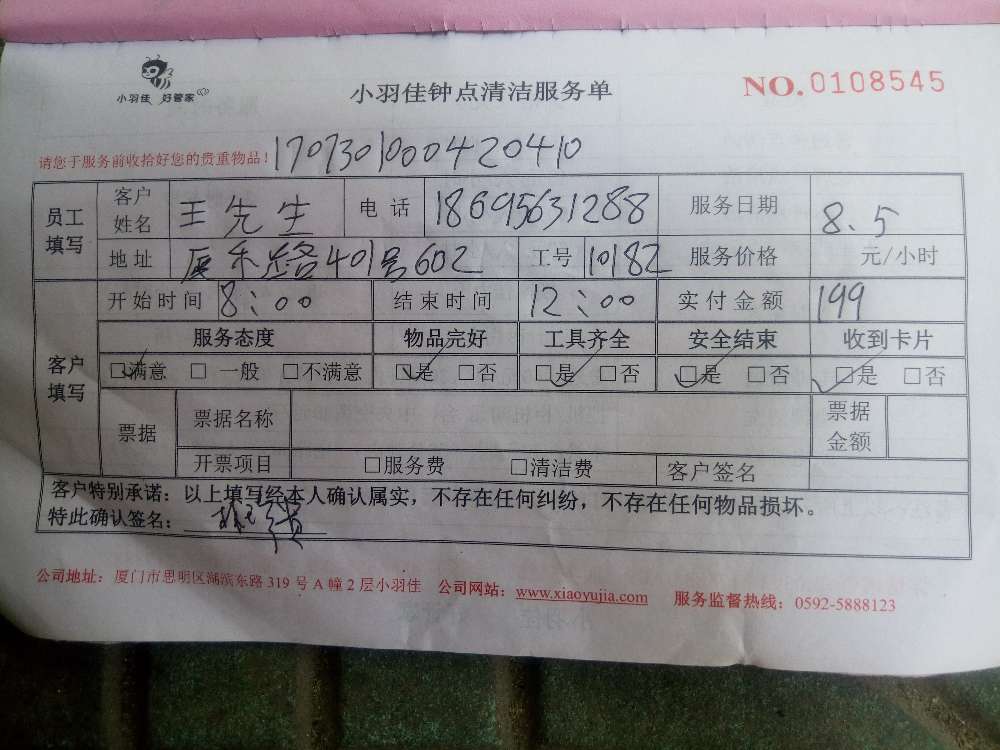 小羽佳 好管家
小羽佳钟点清洁服务单
NO.0108545
请您于服务前收拾好您的贵重物品！1707301000420410
员工填写 客户姓名 王先生 电话 18695631288 服务日期 8.5
地址 厦禾路401号602 工号 10182 服务价格 元/小时
客户填写 开始时间 8:00 结束时间 12:00 实付金额 199
服务态度 物品完好 工具齐全 安全结束 收到卡片
☑满意 □一般 □不满意 ☑是 □否 ☑是 □否 ☑是 □否 ☑是 □否
票据 票据名称 票据金额
开票项目 □服务费 □清洁费 客户签名
客户特别承诺：以上填写经本人确认属实，不存在任何纠纷，不存在任何物品损坏。
特此确认签名：
公司地址：厦门市思明区湖滨东路 319 号 A 幢 2 层小羽佳 公司网站：www.xiaoyujia.com 服务监督热线：0592-5888123